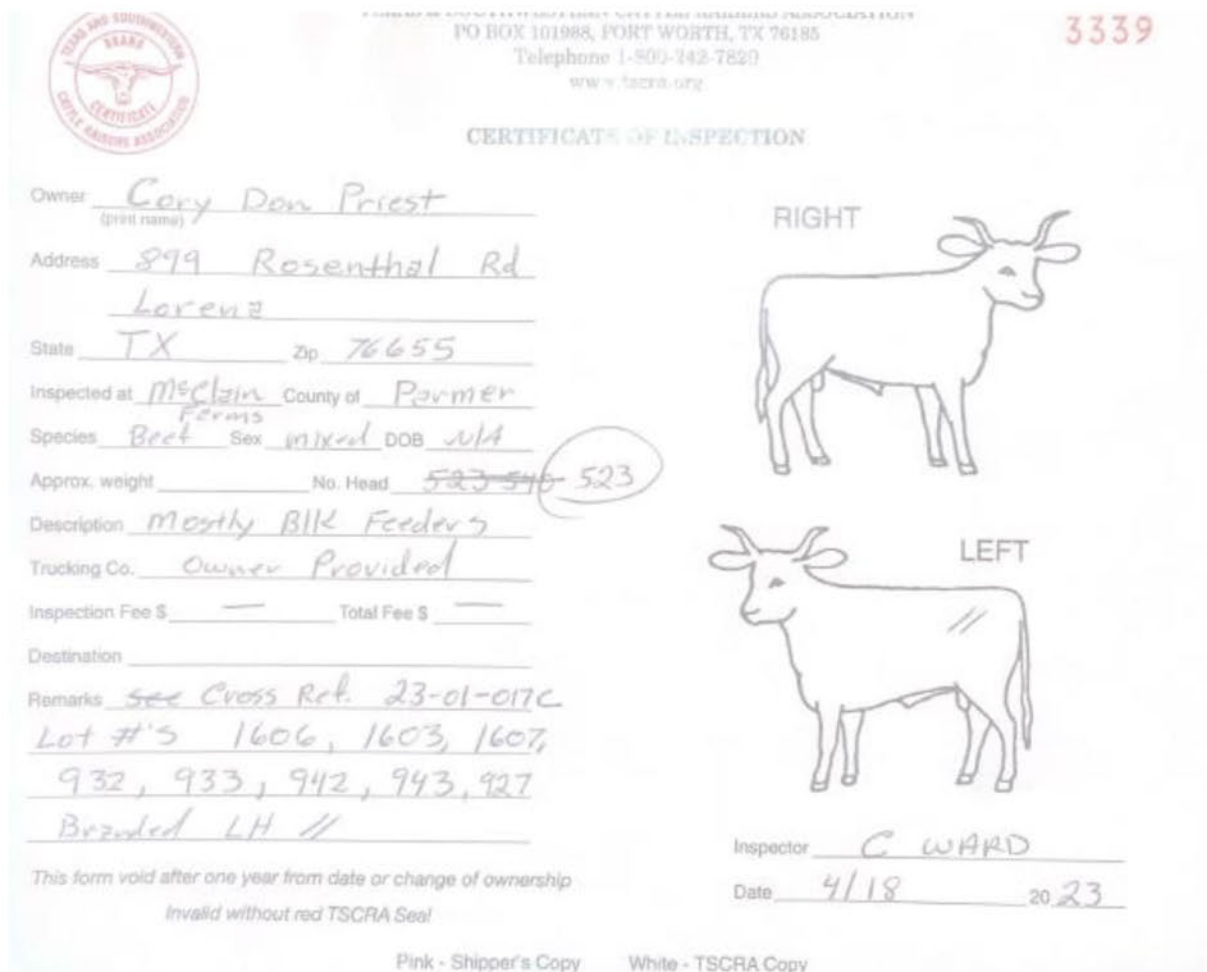 TEXAS AND SOUTHWESTERN
CATTLE RAISERS ASSOCIATION
BRAND
CERTIFICATE
TEXAS & SOUTHWESTERN CATTLE RAISERS ASSOCIATION
PO BOX 101988, FORT WORTH, TX 76185
Telephone 1-800-242-7820
www.tscra.org
3339
CERTIFICATE OF INSPECTION
Owner Cory Don Priest
(print name)
Address 899 Rosenthal Rd
Lorena
State TX Zip 76655
Inspected at McClain Farms County of Parmer
Species Beef Sex mixed DOB N/A
Approx. weight No. Head 523 540 523
Description Mostly Blk Feeders
Trucking Co. Owner Provided
Inspection Fee $ — Total Fee $ —
Destination
Remarks see Cross Ref. 23-01-017C
Lot #'s 1606, 1603, 1607,
932, 933, 942, 943, 927
Branded LH //
This form void after one year from date or change of ownership
Invalid without red TSCRA Seal
RIGHT
LEFT
//
Inspector C WARD
Date 4/18 2023
Pink - Shipper's Copy White - TSCRA Copy